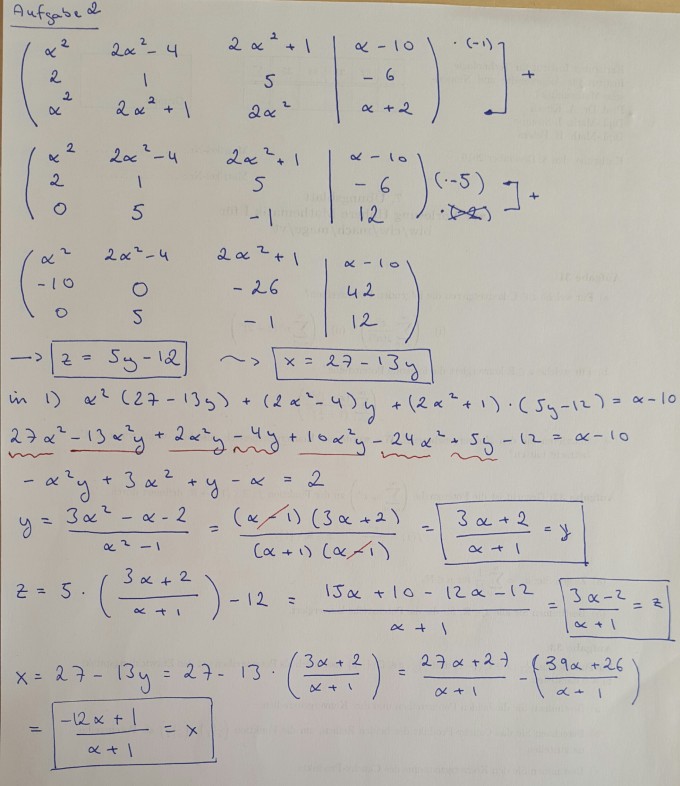 Aufgabe 2
α² 2α²-4 2α²+1 | α-10 ·(-1)
2 1 5 | -6 +
α² 2α²+1 2α² | α+2
α² 2α²-4 2α²+1 | α-10
2 1 5 | -6 (·-5)
0 5 -1 | 12 +
α² 2α²-4 2α²+1 | α-10
-10 0 -26 | 42
0 5 -1 | 12
→ z = 5y-12 ~> x = 27-13y
in 1) α²(27-13y) + (2α²-4)y + (2α²+1)·(5y-12) = α-10
27α² - 13α²y + 2α²y - 4y + 10α²y - 24α² + 5y - 12 = α-10
-α²y + 3α² + y - α = 2
y = (3α²-α-2)/(α²-1) = ((α-1)(3α+2))/((α+1)(α-1)) = (3α+2)/(α+1) = y
z = 5·((3α+2)/(α+1)) - 12 = (15α+10-12α-12)/(α+1) = (3α-2)/(α+1) = z
x = 27-13y = 27-13·((3α+2)/(α+1)) = (27α+27)/(α+1) - ((39α+26)/(α+1))
= (-12α+1)/(α+1) = x